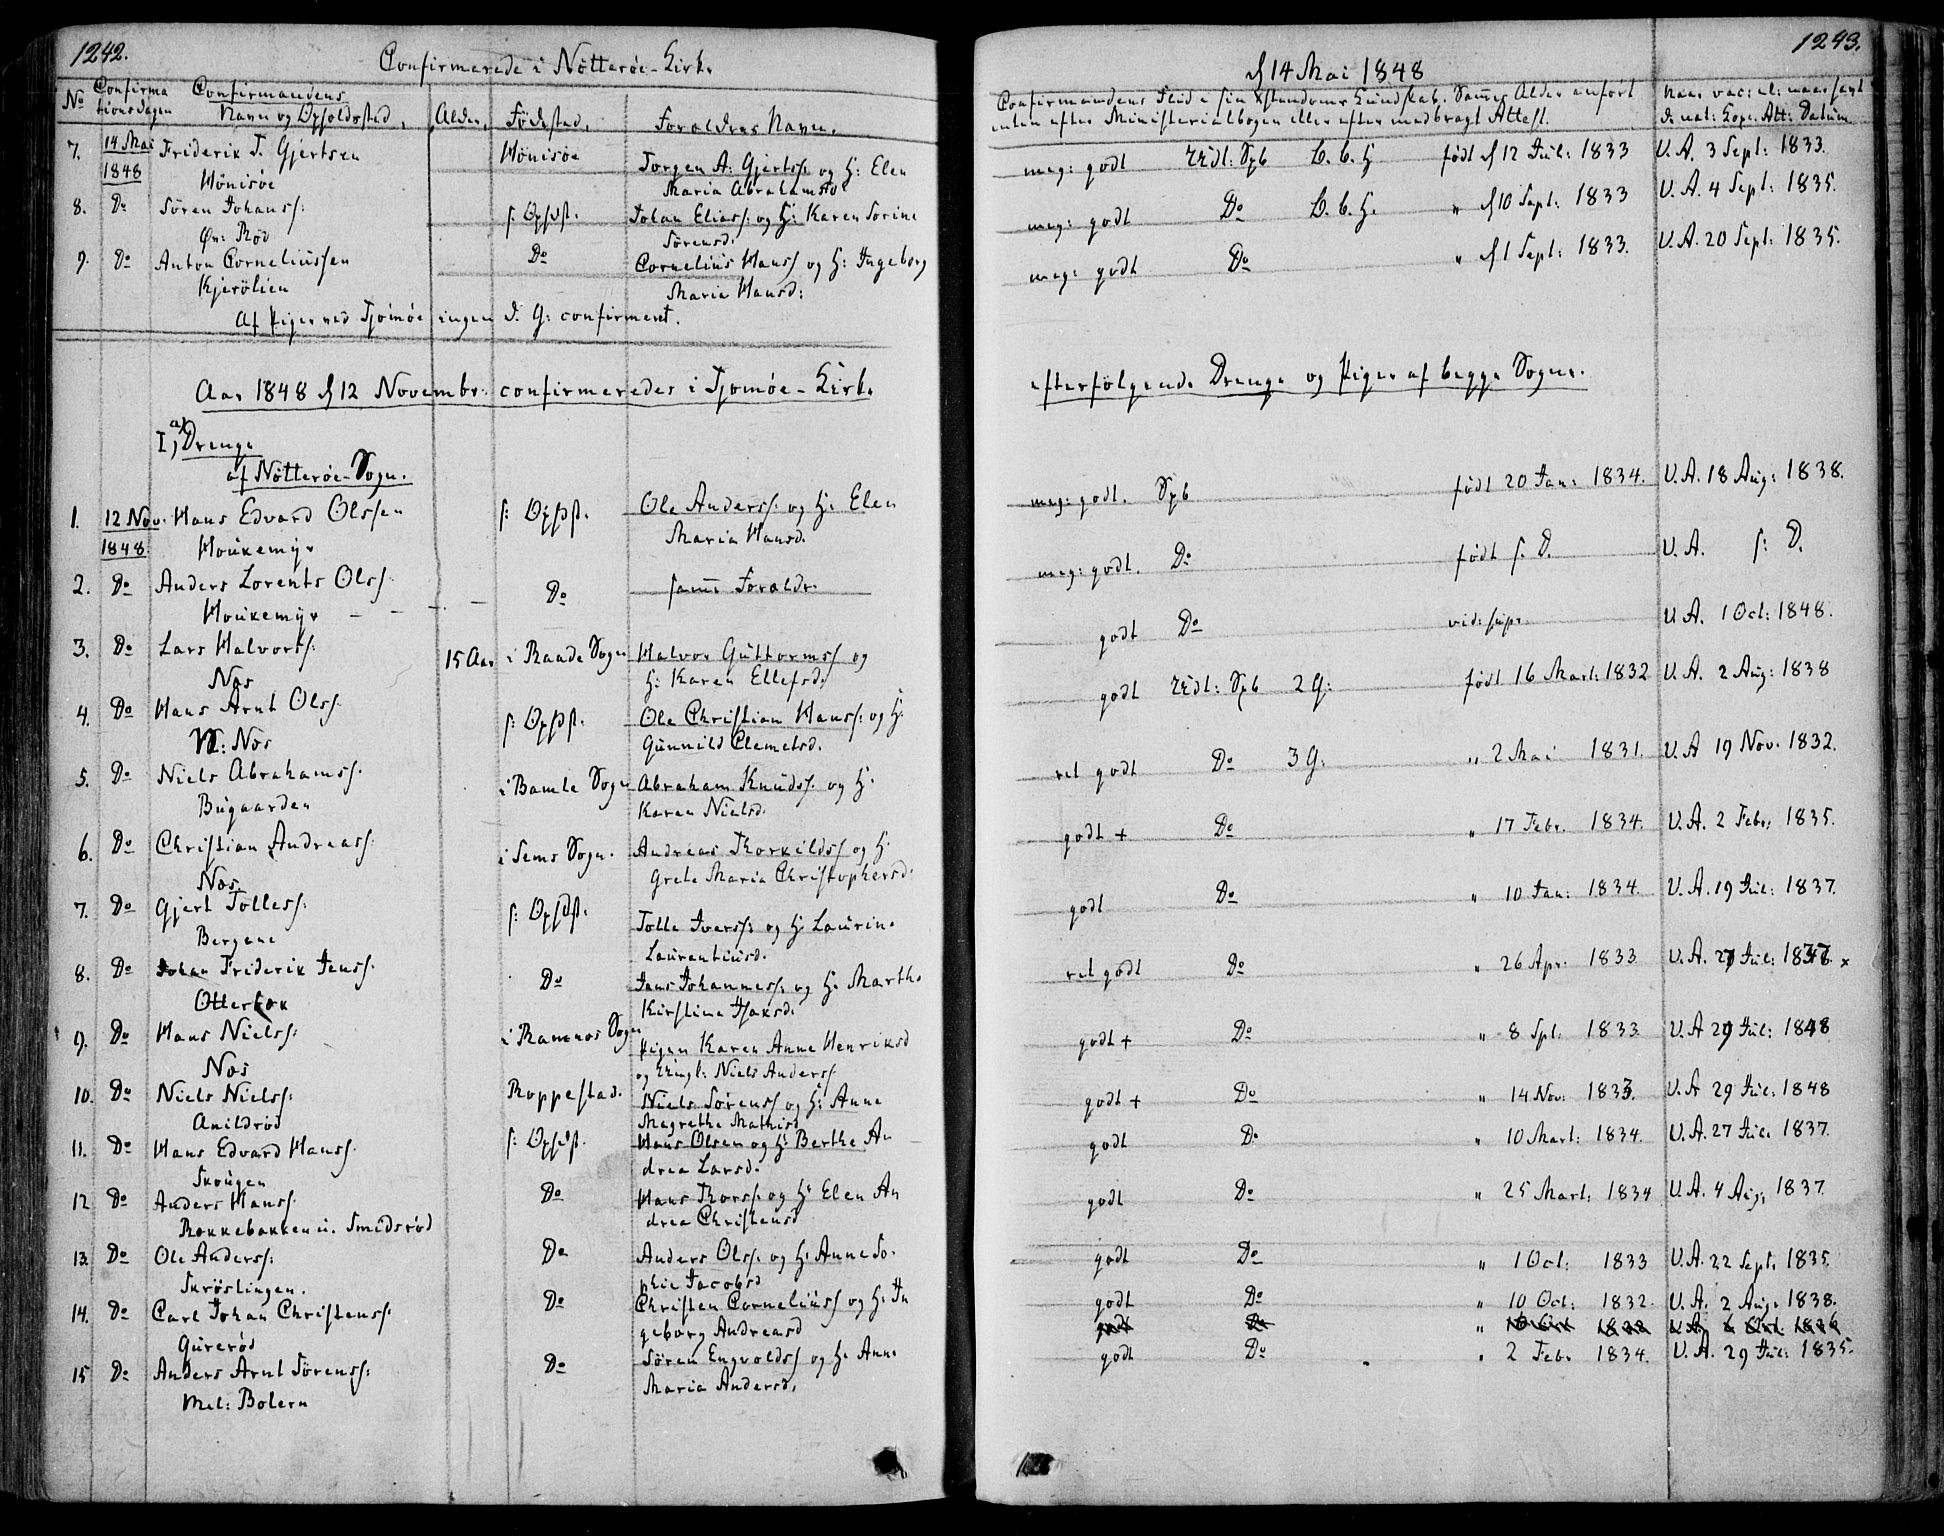 1242.
Confirmerede i Nötterøe-Kirke
No Confirmationsdagen Confirmandens Navn og Opholdssted, Alder, Födested, Foreldres Navn.
7. 14 Mai 1848 Friderik J. Gjertsen Hönisöe Hönisöe Jörgen A: Gjertss: og H: Elen Maria Abrahamsd:
8. Do Sören Johanss: Øv: Röd s: Opst. Johan Eliass: og H: Karen Sorine Sörensd:
9. Do Anton Corneliussen Kjerölien Do Cornelius Hanss og H: Ingeborg Maria Hansd:
Af Piger ved Tjömöe ingen d. G: confirmeret.
Aar 1848 d 12 Novembr: confirmeredes i Tjömöe-Kirke
I, a, Drenge
af Nötterøe-Sogn.
1. 12 Nov. 1848 Hans Edvard Olssen Houkemyr s: Opst. Ole Anderss: og H: Elen Maria Hansd.
2. Do Anders Lorents Olss. Houkemyr Do samme Foreldre
3. Do Lars Halvorss: Nes 15 Aar i Raade Sogn Halvor Guttormss og H: Karen Ellefsd.
4. Do Hans Arnt Olss. N: Nes s: Opst. Ole Christian Hanss: og H: Gunnild Clemetsd.
5. Do Niels Abrahamss. Bugaarden i Bamle Sogn Abraham Knudss: og H: Karen Nielsd.
6. Do Christian Andreass. Nes. i Sems Sogn. Andreas Thorkildss og H: Grete Maria Christophersd:
7. Do Gjert Tolless: Bergene s: Opst. Tolle Iverss: og H: Laurine Laurentiusd.
8. Do Johan Friderik Jenss: Otterbek Do Jens Johanness: og H: Marthe Kirstine Isaksd.
9. Do Hans Nielss: Nes i Ramnes Sogn Pigen Karen Anne Henriksd og Ungk: Niels Anderss
10. Do Niels Nielss: Anildröd Roppestad. Niels Sörenss og H: Anne Magrethe Mathisd
11. Do Hans Edvard Hanss. Skougen s: Opst. Hans Olsen og H: Berthe Andrea Larsd.
12 Do Anders Hanss. Rokkebakken u. Smidsröd Do Hans Thorss: og H: Elen Andrea Christensd
13. Do Ole Anderss: Skröslingen. Do Anders Olss: og H: Anne Sophie Jacobsd
14. Do Carl Johan Christenss: Gureröd Do Christen Corneliuss og H: Ingeborg Andreasd
15 Do Anders Arnt Sörenss: Mel: Bolern Do Sören Engvoldss og H: Anne Maria Andersd.
1243.
d 14 Mai 1848
Confirmandens Flid &amp; sin Xstendoms Kundskab. Samme Alder anfört enten efter Ministerialbogen eller efter medbragt Attest.
Naar vac: el: naar havt d: nat: Kopr. Att: Datum
meg: godt Rdl: Spb B. b. H födt d 12 Jul: 1833 V. A. 3 Sept: 1833.
meg: godt Do B. b. H. " d 10 Sept: 1833 V. A. 4 Sept: 1835.
meg: godt Do " d 1 Sept: 1833. V. A. 20 Sept: 1835.
efterfölgende Drenge og Piger af begge Sogne.
meg: godt. Spb födt 20 Jan: 1834. V. A. 18 Aug: 1838.
meg: godt. Do födt s. D. V. A. s: D.
godt Do vid: supr. V. A. 1 Oct: 1848.
godt Rdl: Spb 2 G: födt 16 Mart: 1832 V. A. 2 Aug: 1838
ret godt Do 3 G. " 2 Mai 1831. V. A 19 Nov. 1832.
godt + Do " 17 Febr. 1834. V. A. 2 Febr: 1835.
godt Do " 10 Jan: 1834. V. A. 19 Jul: 1837.
ret godt Do " 26 Apr. 1833 V. A. 27 Jul: 1837. x
godt + Do " 8 Spt. 1833 V. A 29 Jul: 1848
godt + Do " 14 Nov: 1833. V. A 29 Jul: 1848
godt Do " 10 Mart: 1834. V. A. 27 Jul. 1837.
godt Do " 25 Mart: 1834 V. A. 4 Aug, 1837.
godt Do " 1 Oct: 1833 V. A. 22 Sept. 1835.
godt Do " 10 Oct: 1832. V. A. 2 Aug. 1838.
godt Do "
godt Do " 2 Febr 1834. V. A. 29 Jul: 1835.